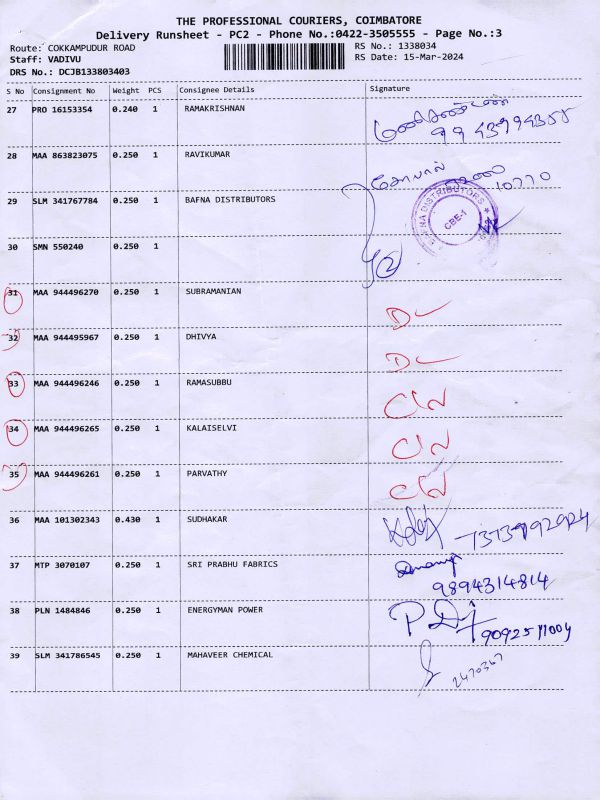 THE PROFESSIONAL COURIERS, COIMBATORE
Delivery Runsheet - PC2 - Phone No.:0422-3505555 - Page No.:3
Route: COKKAMPUDUR ROAD RS No.: 1338034
Staff: VADIVU RS Date: 15-Mar-2024
DRS No.: DCJB133803403
S No Consignment No Weight PCS Consignee Details Signature
27 PRO 16153354 0.240 1 RAMAKRISHNAN
28 MAA 863823075 0.250 1 RAVIKUMAR
10770
29 SLM 341767784 0.250 1 BAFNA DISTRIBUTORS
BAFNA DISTRIBUTORS
CBE-1
30 SMN 550240 0.250 1
2
31 MAA 944496270 0.250 1 SUBRAMANIAN
DL
32 MAA 944495967 0.250 1 DHIVYA
DL
33 MAA 944496246 0.250 1 RAMASUBBU
34 MAA 944496265 0.250 1 KALAISELVI
35 MAA 944496261 0.250 1 PARVATHY
36 MAA 101302343 0.430 1 SUDHAKAR
37 MTP 3070107 0.250 1 SRI PRABHU FABRICS
9894314814
38 PLN 1484846 0.250 1 ENERGYMAN POWER
39 SLM 341786545 0.250 1 MAHAVEER CHEMICAL
2470367